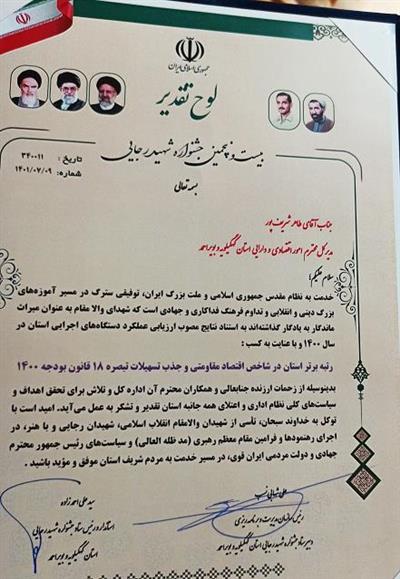 جمهوری اسلامی ایران
لوح تقدیر
بیست و پنجمین جشنواره شهید رجایی
تاریخ : ۳۴۰۰۱۱
شماره: ۱۴۰۱/۰۷/۰۹
بسمه تعالی
جناب آقای طاهر شریف پور
مدیرکل محترم امور اقتصادی و دارایی استان کهگیلویه و بویراحمد
سلام علیکم؛
خدمت به نظام مقدس جمهوری اسلامی و ملت بزرگ ایران، توفیقی سترگ در مسیر آموزه‌های
بزرگ دینی و انقلابی و تداوم فرهنگ فداکاری و جهادی است که شهدای والا مقام به عنوان میراث
ماندگار به یادگار گذاشته‌اند به استناد نتایج مصوب ارزیابی عملکرد دستگاه‌های اجرایی استان در
سال ۱۴۰۰ و با عنایت به کسب :
رتبه برتر استان در شاخص اقتصاد مقاومتی و جذب تسهیلات تبصره ۱۸ قانون بودجه ۱۴۰۰
بدینوسیله از زحمات ارزنده جنابعالی و همکاران محترم آن اداره کل و تلاش برای تحقق اهداف و
سیاست‌های کلی نظام اداری و اعتلای همه جانبه استان تقدیر و تشکر به عمل می‌آید. امید است با
توکل به خداوند سبحان، تأسی از شهیدان والامقام انقلاب اسلامی، شهیدان رجایی و با هنر، در
اجرای رهنمودها و فرامین مقام معظم رهبری (مد ظله العالی) و سیاست‌های رئیس جمهور محترم
جهادی و دولت مردمی ایران قوی، در مسیر خدمت به مردم شریف استان موفق و مؤید باشید .
علی شهابی نسب
رئیس سازمان مدیریت و برنامه ریزی
دبیر ستاد جشنواره شهید رجایی استان کهگیلویه و بویراحمد
سید علی احمدزاده
استاندار و رئیس ستاد جشنواره شهید رجایی
استان کهگیلویه و بویراحمد